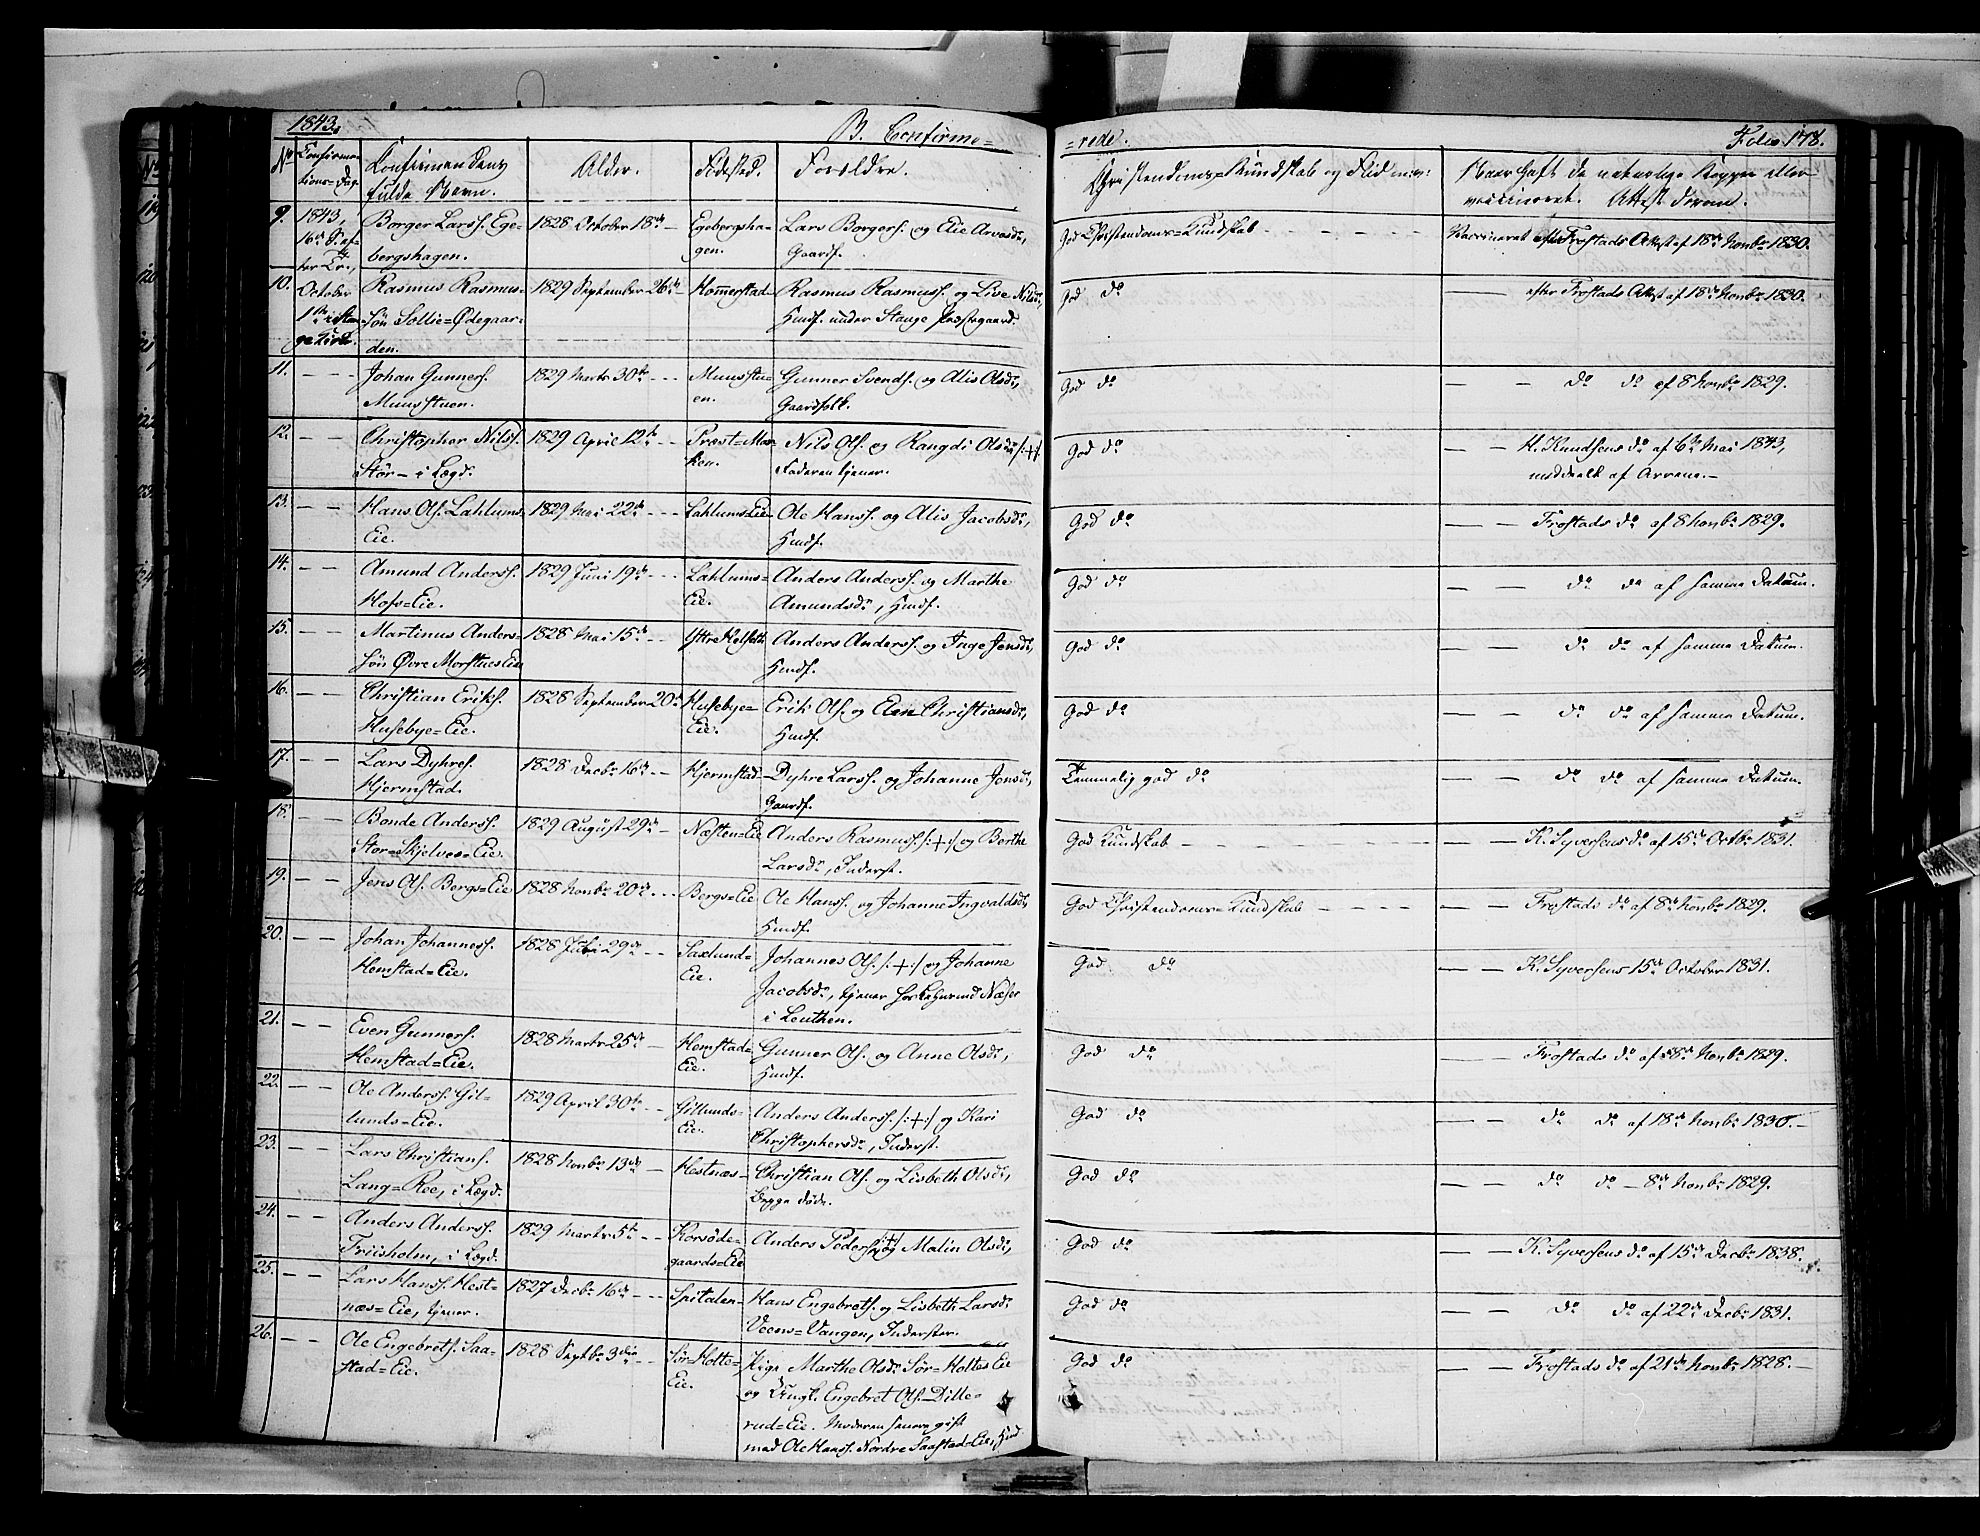 1843.
B. Confirme=
=rede.
Folio 178.
No
Confirma-
tions=Dag.
Confirmandens
fulde Navn.
Alder.
Fødested.
Forældre.
Christendoms=Kundskab og Flid m. v.
Naar haft de naturlige Kopper eller
vaccineret. Attest derom.
9.
1843,
Borger Larss. Ege-
bergshagen.
1828 October 18de
Egebergsha-
gen.
Lars Borgers. og Eie Arvesdr,
Gaardf.
God Christendoms=Kundskab
Vaccineret efter Frostads Attest af 18de Novbr 1830.
10.
October
Rasmus Rasmus-
søn Sollie=Ødegaar-
den.
1829 September 26de
Hommerstad
Rasmus Rasmuss. og Live Nilsdr,
Huusf. under Stange Præstegaard.
God do
efter Frostads Attest af 18de Novbr 1830.
11.
Johan Gunners.
Muusstuen.
1829 Marts 30te
Muusstu-
en.
Gunner Svends. og Alis Olsdr,
Gaardfolk.
God do
do do af 8 Novbr 1829.
12.
Christopher Nilss.
Stør i Lægd.
1829 April 12te
Præst=Mar-
ken.
Nils Ols. og Rangdi Olsdr /:+:/
Faderen tjener.
God do
H. Knudsens do af 6te Mai 1843,
meddeelt af Arrene.
13.
Hans Ols. Lahlums
Eie.
1829 Mai 22de
Lahlums=Eie
Ole Hanss. og Alis Jacobsdr,
Huusf.
God do
Frostads do af 8 Novbr 1829.
14.
Amund Anderss.
Hofs=Eie.
1829 Juni 19de
Lahlums=
Eie.
Anders Anderss. og Marthe
Amundsdr, Huusf.
God do
do do af samme Datum.
15.
Martinus Anders-
søn Øvre Morstues Eie
1828 Mai 15de
Yttre Helseth
Anders Anderss. og Inge Jensdr,
Huusf.
God do
do do af samme Datum.
16.
Christian Eriks.
Husebye=Eie.
1828 September 20de
Husebye=
Eie.
Erik Ols. og Elen Christiansdr,
Huusf.
God do
do do af samme Datum.
17.
Lars Dyhres.
Hjermstad.
1828 Decbr 16de
Hjermstad
Dyhre Larss. og Johanne Jensdr,
Gaardf.
Temmelig god do
do do af samme Datum.
18.
Bonde Anderss.
Stor=Skjelves=Eie.
1829 August 29de
Næsten=Eie
Anders Rasmuss. /:+:/ og Berthe
Larsdr, Inderst.
God Kundskab
K. Syversens do af 15de Octbr 1831.
19.
Jens Ols. Bergs=Eie
1828 Novbr 20de
Bergs=Eie
Ole Hanss. og Johanne Ingvaldsdr,
Huusf.
God Christendoms=Kundskab
Frostads do af 8de Novbr 1829.
20.
Johan Johanness.
Hemstad=Eie.
1828 Juli 29de
Saxlund=
Eie.
Johannes Ols. /:+:/ og Johanne
Jacobsdr, tjener hos Næser
i Leuthen.
God do
K. Syversens 15de October 1831.
21.
Even Gunners.
Hemstad=Eie.
1828 Marts 25de
Hemstad=
Eie.
Gunner Ols. og Anne Olsdr,
Huusf.
God do
Frostads do af 8de Novbr 1829.
22.
Ole Anderss. Gil-
lunds=Eie.
1829 April 30te
Gillunds=
Eie.
Anders Anderss. /:+:/ og Kari
Christophersdr, Inderst.
God do
do do af 18de Novbr 1830.
23.
Lars Christians.
Lang=Ree, i Lægd.
1828 Novbr 13de
Hestnæs
Christian Ols. og Lisbeth Olsdr,
begge døde.
God do
do do 8de Novbr 1829.
24.
Anders Anderss.
Friisholm, i Lægd.
1829 Marts 5te
Korsøde-
gaards=Eie
Anders Peders. /:+:/ og Malin Olsdr,
God do
K. Syversens do af 15de Decbr 1838.
25.
Lars Hanss. Hest-
næs=Eie, tjener.
1827 Decbr 16de
Spitalen
Hans Engebrets. og Lisbeth Larsdr
Veens=Vangen, Inderster.
God do
do do af 22de Decbr 1831.
26.
Ole Engebrets. Saa-
stad=Eie.
1828 Septbr 3die
Sør=Holte=
Eie.
Pige Marthe Olsdr Sør=Holtes Eie
og Ungk. Engebret Ols. Dille-
rud=Eie. Moderen senere gift
med Ole Hanss. Nordre Saastad=Eie, Huusf.
God do
Frostads do af 21de Novbr 1828.